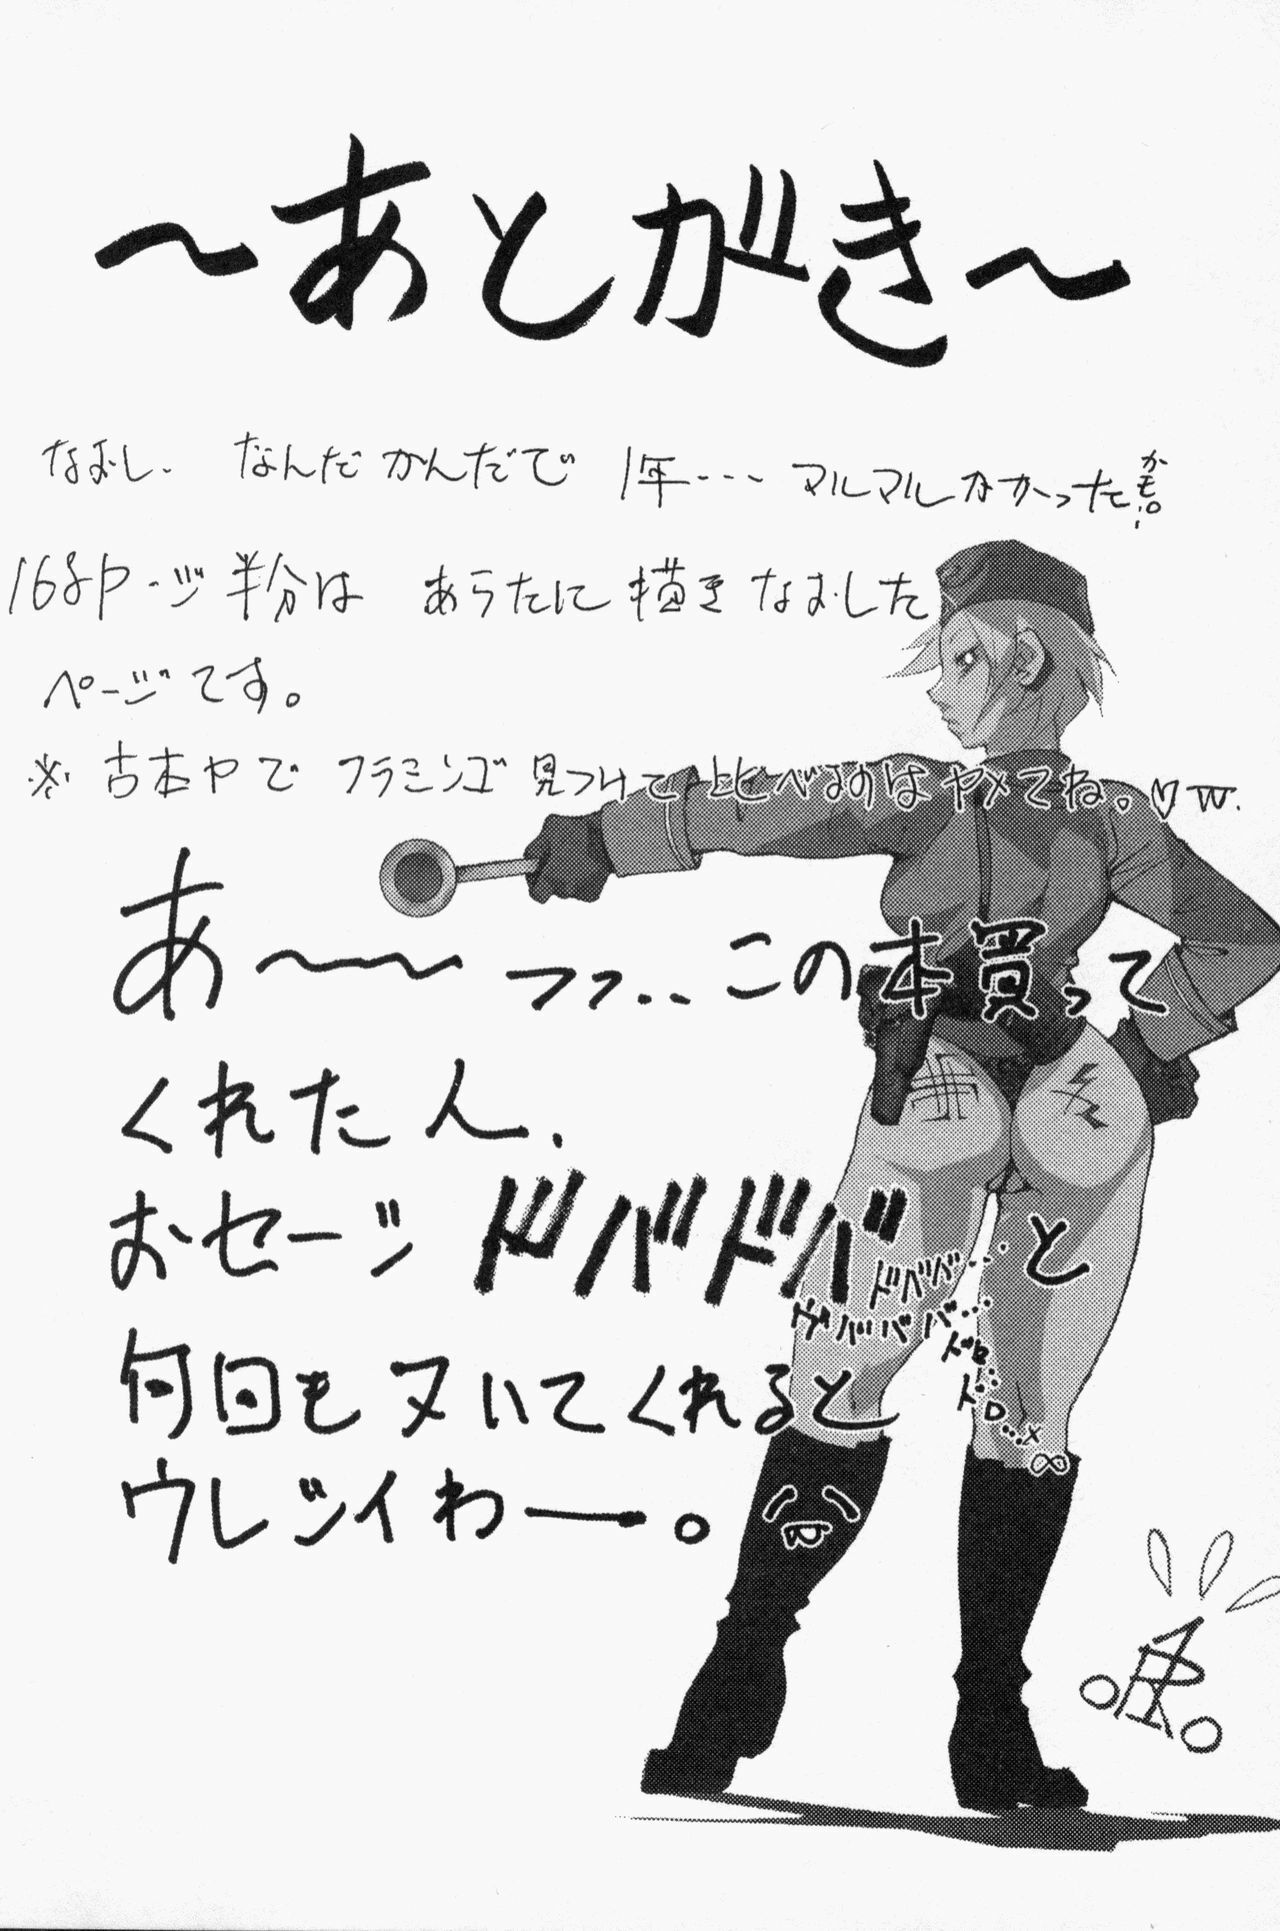 ～あとがき～
なおし、なんだかんだで 1年... マルマルしなかったかも。
168ページ半分は あらたに描きなおした
ページです。
※古本ヤで フラミンゴ見つけて比べるのはヤメてね。
あ～～ つつ.. この本買って
くれた人、
おセージ ドバドバ と
ドババ...
ババババ...
何回もヌいてくれると
ウレシイわー。